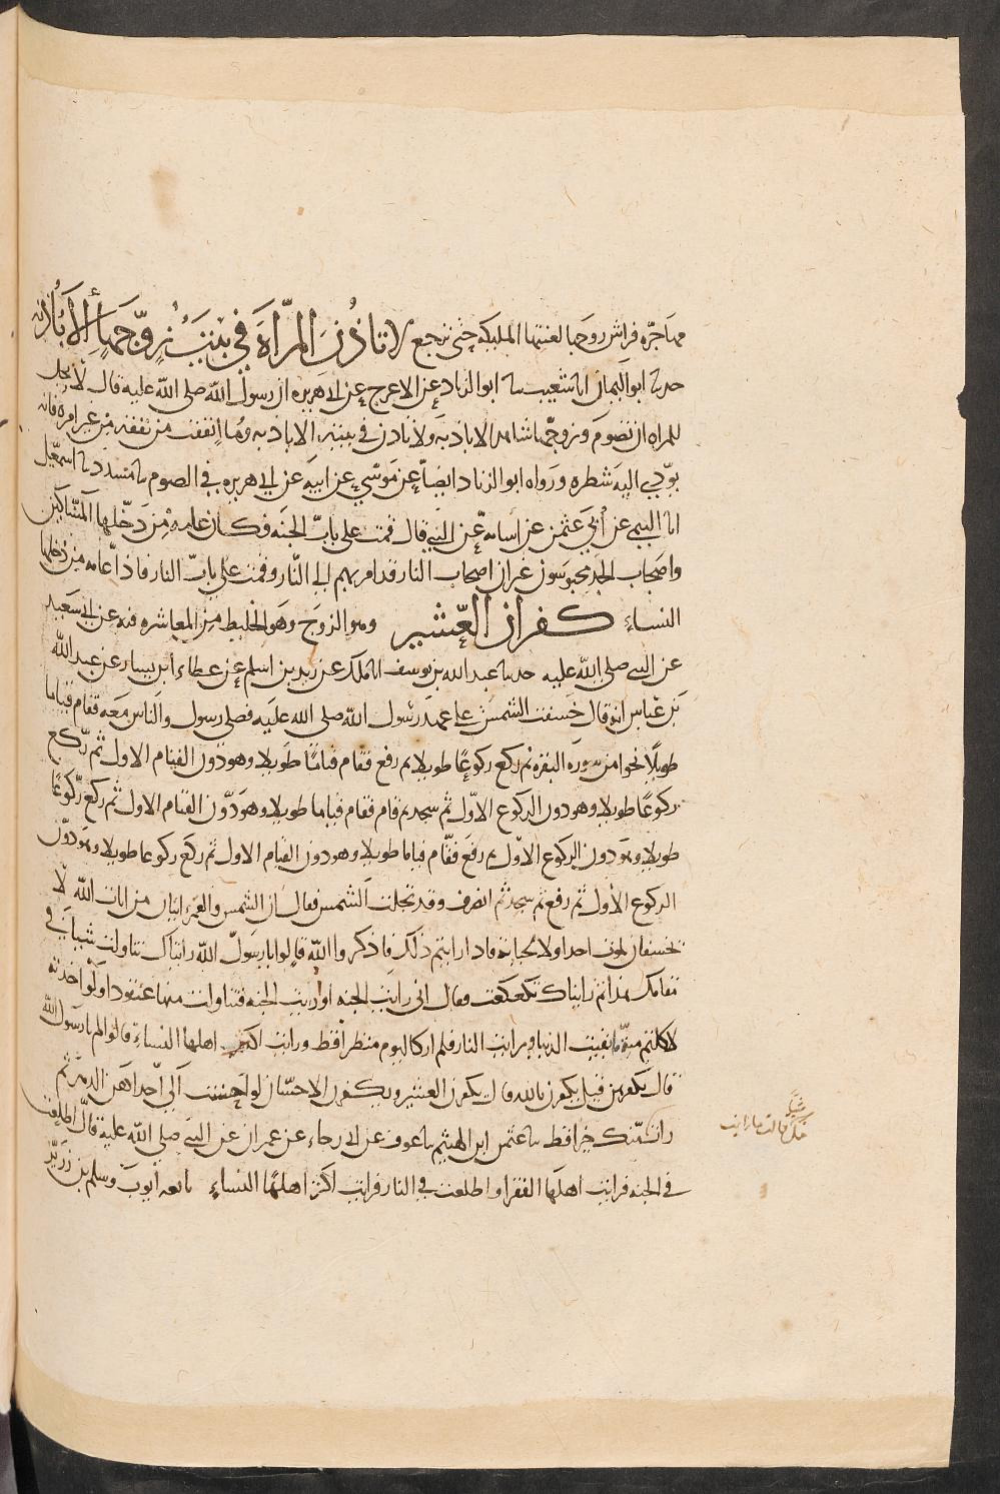 مهاجرة فراش زوجها لعنتها الملىكه حتى ترجع لا تاذن المرأة في بيت زوجها إلا باذنه
حدىا ابو اليمان انا شعيب ىا ابو الزناد عن الاعرج عن ابي هريره ان رسول الله صلى الله عليه قال لا يحل
للمراه ان تصوم وزوجها شاهد الا باذنه ولا تاذن في بيته الا باذنه وما انفقت من نفقه من غير امره فانه
يودي اليه شطره ورواه ابو الزناد ايضا عن موسي عن ابيه عن ابي هريره في الصوم ىا مسدد ىا اسمعيل
انا التيمي عن أبي عثمن عن اسامة عن النبي قال قمت على باب الجنه فكان عامه من دخلها المساكين
واصحاب الجد محبوسون غير ان اصحاب النار قد امر بهم الي النار وقمت على باب النار فاذا عامه من دخلها
النساء كفران العشير وهو الزوج وهو الخليط من المعاشره فيه عن ابي سعيد
عن النبي صلى الله عليه حدىا عبد الله بن يوسف انا ملك عن زيد بن اسلم عن عطاء ابن يسار عن عبد الله
بن عباس انه قال خسفت الشمس على عهد رسول الله صلى الله عليه فصلى رسول والناس معه فقام قياما
طويلا نحوا من سورة البقره ثم ركع ركوعا طويلا ثم رفع فقام قياما طويلا وهو دون القيام الاول ثم ركع
ركوعا طويلا وهو دون الركوع الاول ثم سجد ثم قام فقام قياما طويلا وهو دون القيام الاول ثم ركع ركوعا
طويلا وهو دون الركوع الاول ثم رفع فقام قياما طويلا وهو دون القيام الاول ثم ركع ركوعا طويلا وهو دون
الركوع الأول ثم رفع ثم سجد ثم انصرف وقد تجلت الشمس فقال ان الشمس والقمر ايتان من ايات الله لا
يخسفان لموت احد ولا لحياته فاذا رايتم ذلك فاذكروا الله قالوا يا رسول الله رايناك تناولت شيئا في
مقامك هذا ثم رايناك تكعكعت فقال انى رايت الجنه او اريت الجنه فتناولت منها عنقودا ولو اخذته
لاكلتم منه ما بقيت الدنيا ورايت النار فلم ار كاليوم منظرا قط ورايت اكثر اهلها النساء قالوا لم يا رسول الله
قال بكفرهن قيل يكفرن بالله قال يكفرن العشير ويكفرن الاحسان لو احسنت الى احداهن الدهر ثم
رات منك خيرا قط ىا عثمن ابن الهيثم ىا عوف عن ابي رجاء عن عمران عن النبي صلى الله عليه قال اطلعت
في الجنه فرايت اهلها الفقراء واطلعت في النار فرايت اكثر اهلها النساء تابعه أيوب وسلم بن زرير
شيا
قالت ما رايت